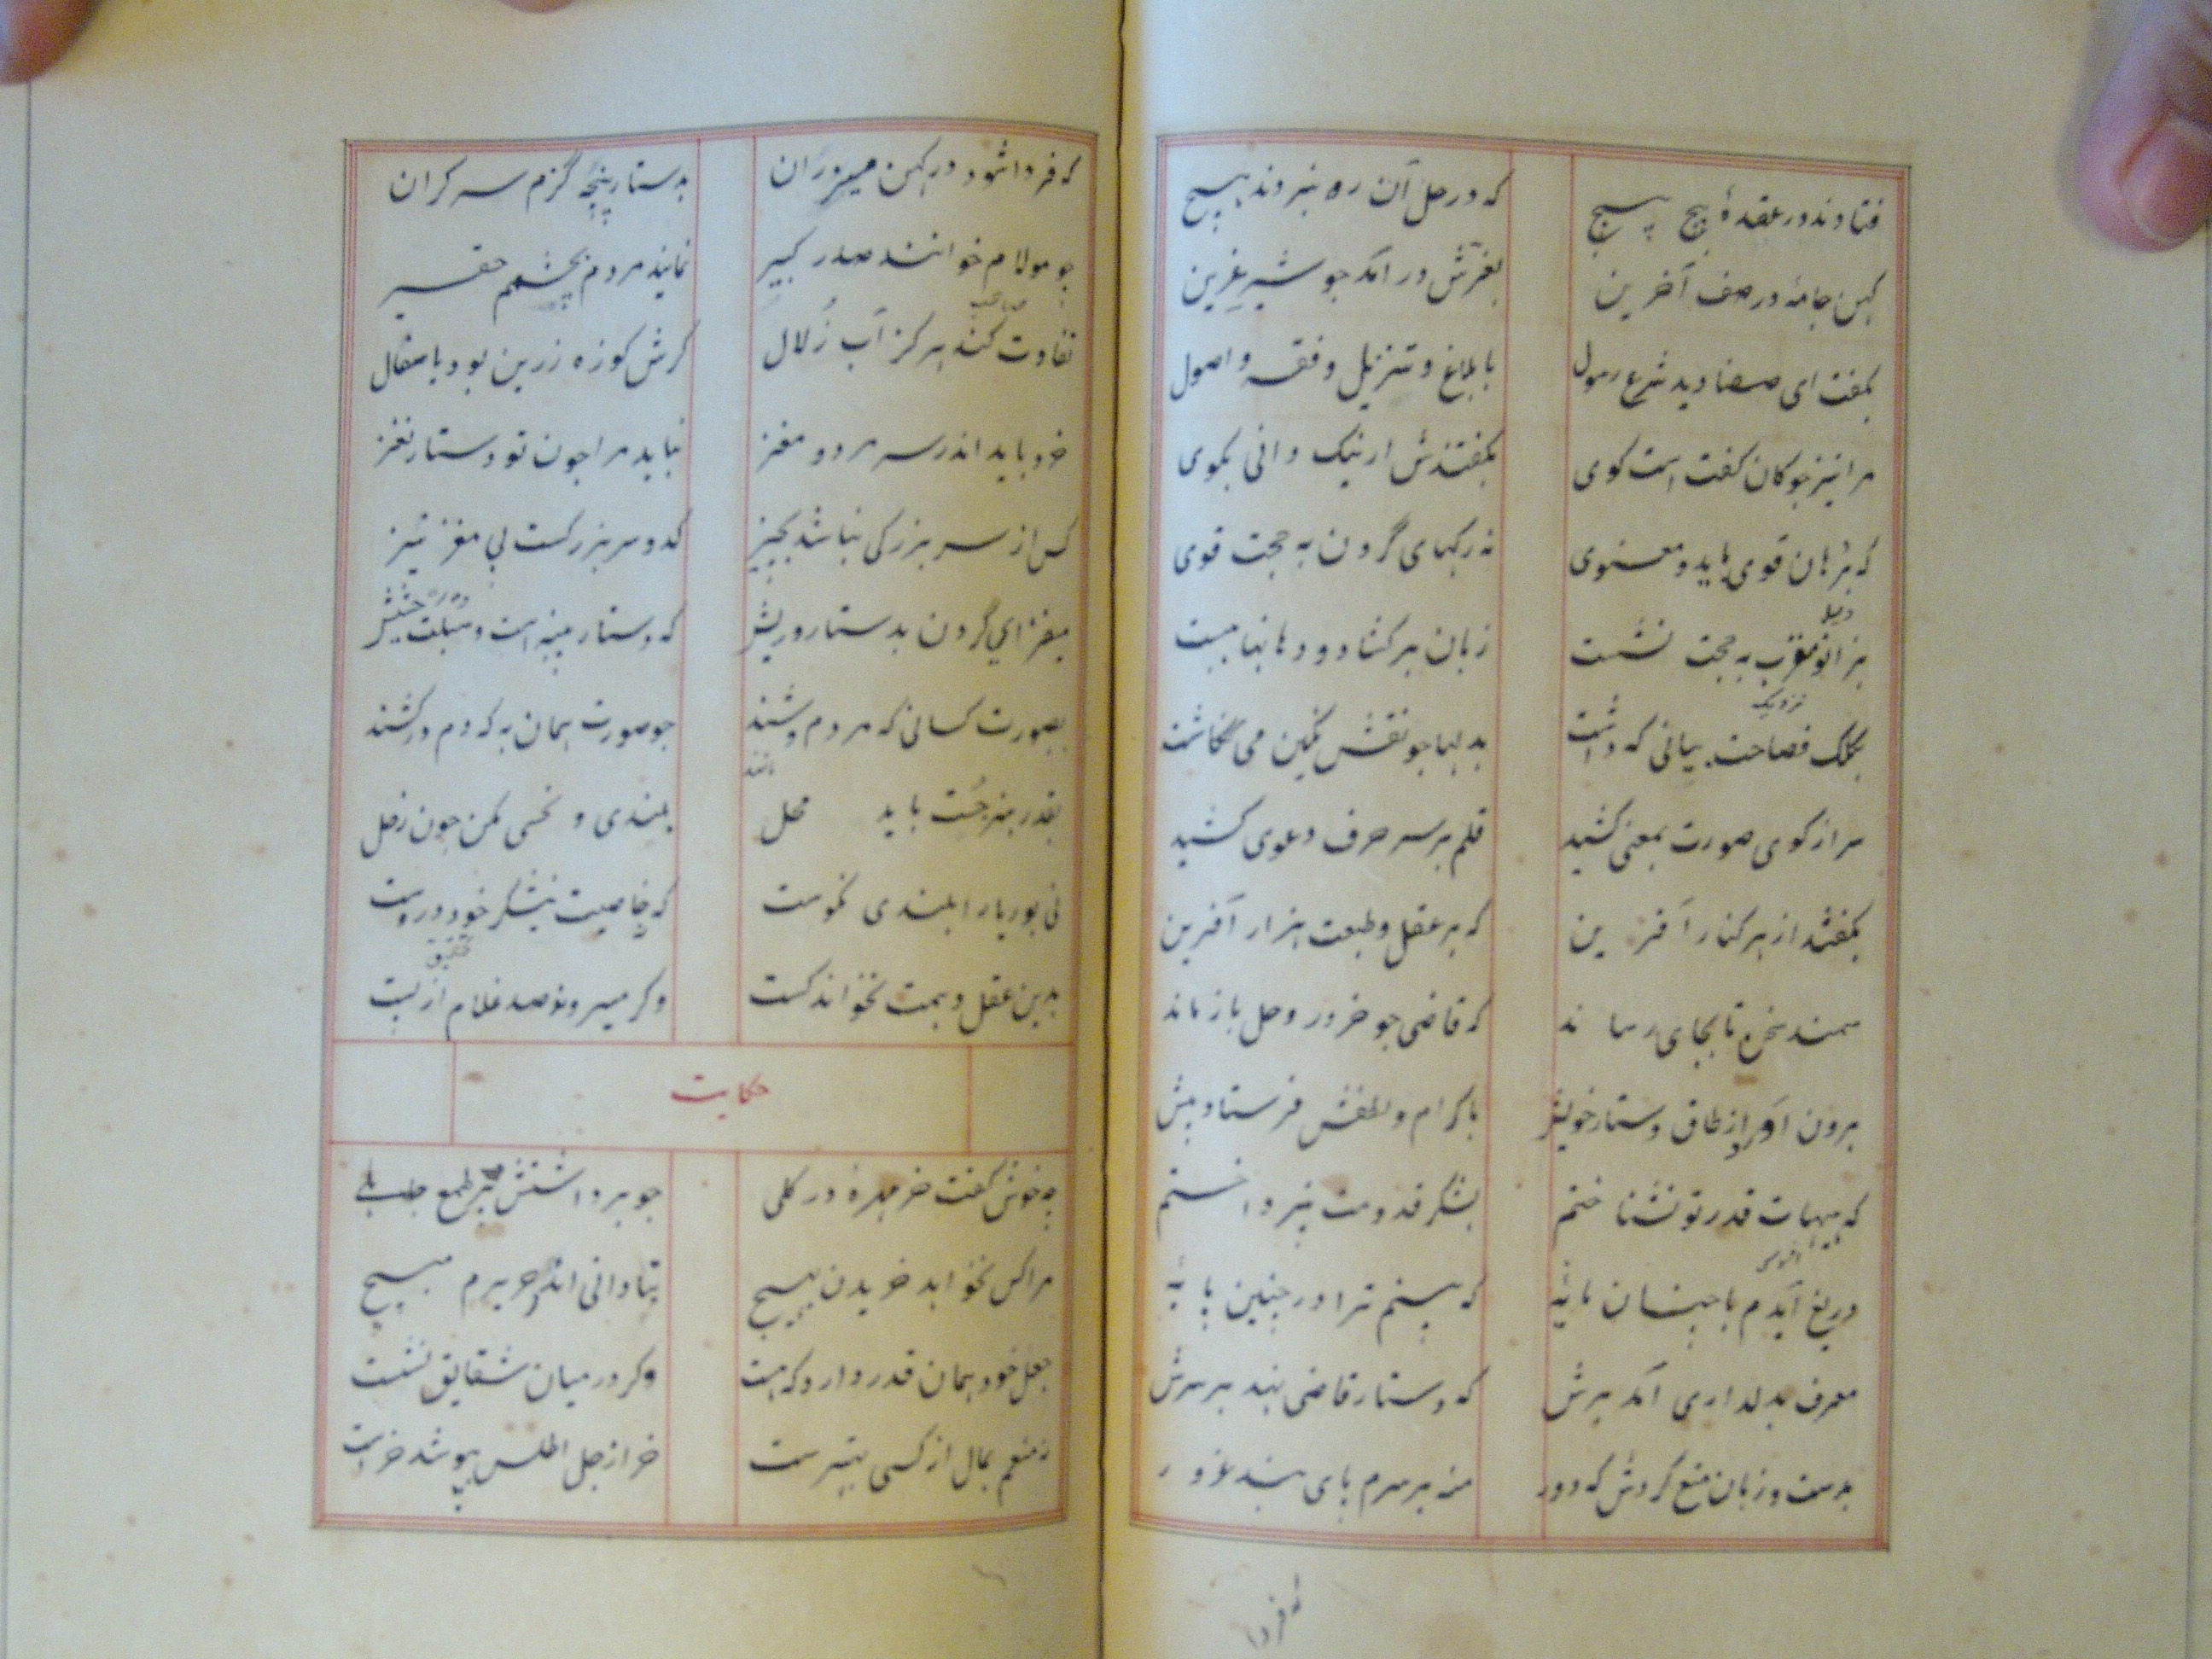 فتادند در عقدهٔ پیچ پیچ که در حل آن ره نبردند هیچ
کهن جامه در صف آخرین بغرش در آمد چو شیر عرین
بگفت ای صنادید شرع رسول بابلاغ و تنزیل و فقه و اصول
مرا نیز چوکان کفت است کوی بگفتندش ار نیک دانی بکوی
که برهان قوی باید و معنوی نه رکهای گردن به حجت قوی
بزانو مقرب به حجت نشست زبان برکشاد و دهانها ببست
بکلک فصاحت بیانی که داشت بدلها چو نقش نکین می نکاشت
سر از کوی صورت بمعنی کشید قلم بر سر حرف دعوی کشید
بگفتند از هر کنار آفرین که بر عقل و طبعت هزار آفرین
سمند سخن تا بجای رساند که قاضی چو خر در وحل باز ماند
برون آمد از طاق و دستار خویش باکرام و لطفش فرستاد پیش
که هیهات قدر تو نشناختم بشکر قدومت نپرداختم
افسوس
دریغ آیدم با چنان مایهٔ که بینم ترا در چنین پایهٔ
معرف بدلداری آمد برش که دستار قاضی نهد بر سرش
بدست و زبان منع کردش که دور منه بر سرم پای بند غرور
که فردا
که فردا شود در کهن میزران بدستار پنجه گزم سر کران
چو مولام خوانند صدر کبیر نمایند مردم بچشمم حقیر
تفاوت کند هرکز آب زلال کرش کوزه زرین بود یا سفال
خرد باید اندر سر مرد و مغز نباید مرا چون تو دستار نغز
کس از سر بزرکی نباشد بچیز کدو سر بزرکست بی مغز نیز
میفراز گردن بدستار و ریش که دستار پنبه است و سبلت حشیش
بصورت کسانی که مردم وشند چو صورت همان به که دم درکشند
مانند
بقدر هنر جست باید محل بلندی و نحسی مکن چون زحل
نی بوریا را بلندی نکوست که خاصیت نیشکر خود دروست
تحقیق
بدین عقل و همت نخوانم کست وکر میرود صد غلام از پست
حکایت
چه خوش کفت خر مهرهٔ در کلی چو برداشتش پر طمع جاهلی
مرا کس نخواهد خریدن بهیچ بنادانی اندر حریرم مپیچ
جعل خود همان قدر دارد که هست وکر در میان شقایق نشست
نه منعم بمال از کسی بهترست خر ار جل اطلس بپوشد خرست